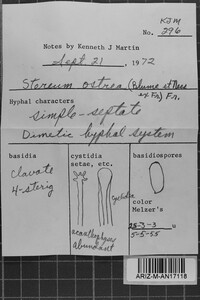 KJM
No. 296
Notes by Kenneth J Martin
Sept 21, 1972
Stereum ostrea (Blume et Nees
ex Fr.) Fr.
Hyphal characters
simple-septate
Dimitic hyphal system
basidia
cystidia
setae, etc.
basidiospores
clavate
4-sterig
cystidia
acanthophyses
abundant
color
Melzer's
u
5-5.55
ARIZ-M-AN17118